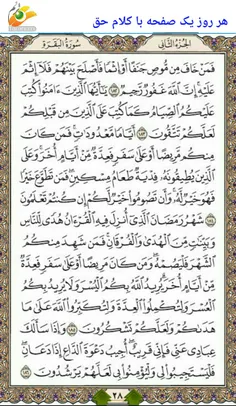 هر روز یک صفحه با کلام حق
سُورَةُ البَقَرَةِ
الجُزءُ الثَّانِي
فَمَنْ خَافَ مِن مُّوصٍ جَنَفًا أَوْ إِثْمًا فَأَصْلَحَ بَيْنَهُمْ فَلَا إِثْمَ
عَلَيْهِ إِنَّ اللَّهَ غَفُورٌ رَّحِيمٌ ١٨٢ يَا أَيُّهَا الَّذِينَ آمَنُوا كُتِبَ
عَلَيْكُمُ الصِّيَامُ كَمَا كُتِبَ عَلَى الَّذِينَ مِن قَبْلِكُمْ
لَعَلَّكُمْ تَتَّقُونَ ١٨٣ أَيَّامًا مَّعْدُودَاتٍ فَمَن كَانَ
مِنكُم مَّرِيضًا أَوْ عَلَى سَفَرٍ فَعِدَّةٌ مِّنْ أَيَّامٍ أُخَرَ وَعَلَى
الَّذِينَ يُطِيقُونَهُ فِدْيَةٌ طَعَامُ مِسْكِينٍ فَمَن تَطَوَّعَ خَيْرًا
فَهُوَ خَيْرٌ لَّهُ وَأَن تَصُومُوا خَيْرٌ لَّكُمْ إِن كُنتُمْ تَعْلَمُونَ
١٨٤ شَهْرُ رَمَضَانَ الَّذِي أُنزِلَ فِيهِ الْقُرْآنُ هُدًى لِّلنَّاسِ
وَبَيِّنَاتٍ مِّنَ الْهُدَى وَالْفُرْقَانِ فَمَن شَهِدَ مِنكُمُ
الشَّهْرَ فَلْيَصُمْهُ وَمَن كَانَ مَرِيضًا أَوْ عَلَى سَفَرٍ فَعِدَّةٌ
مِّنْ أَيَّامٍ أُخَرَ يُرِيدُ اللَّهُ بِكُمُ الْيُسْرَ وَلَا يُرِيدُ بِكُمُ
الْعُسْرَ وَلِتُكْمِلُوا الْعِدَّةَ وَلِتُكَبِّرُوا اللَّهَ عَلَى مَا
هَدَاكُمْ وَلَعَلَّكُمْ تَشْكُرُونَ ١٨٥ وَإِذَا سَأَلَكَ
عِبَادِي عَنِّي فَإِنِّي قَرِيبٌ أُجِيبُ دَعْوَةَ الدَّاعِ إِذَا دَعَانِ
فَلْيَسْتَجِيبُوا لِي وَلْيُؤْمِنُوا بِي لَعَلَّهُمْ يَرْشُدُونَ ١٨٦
٢٨